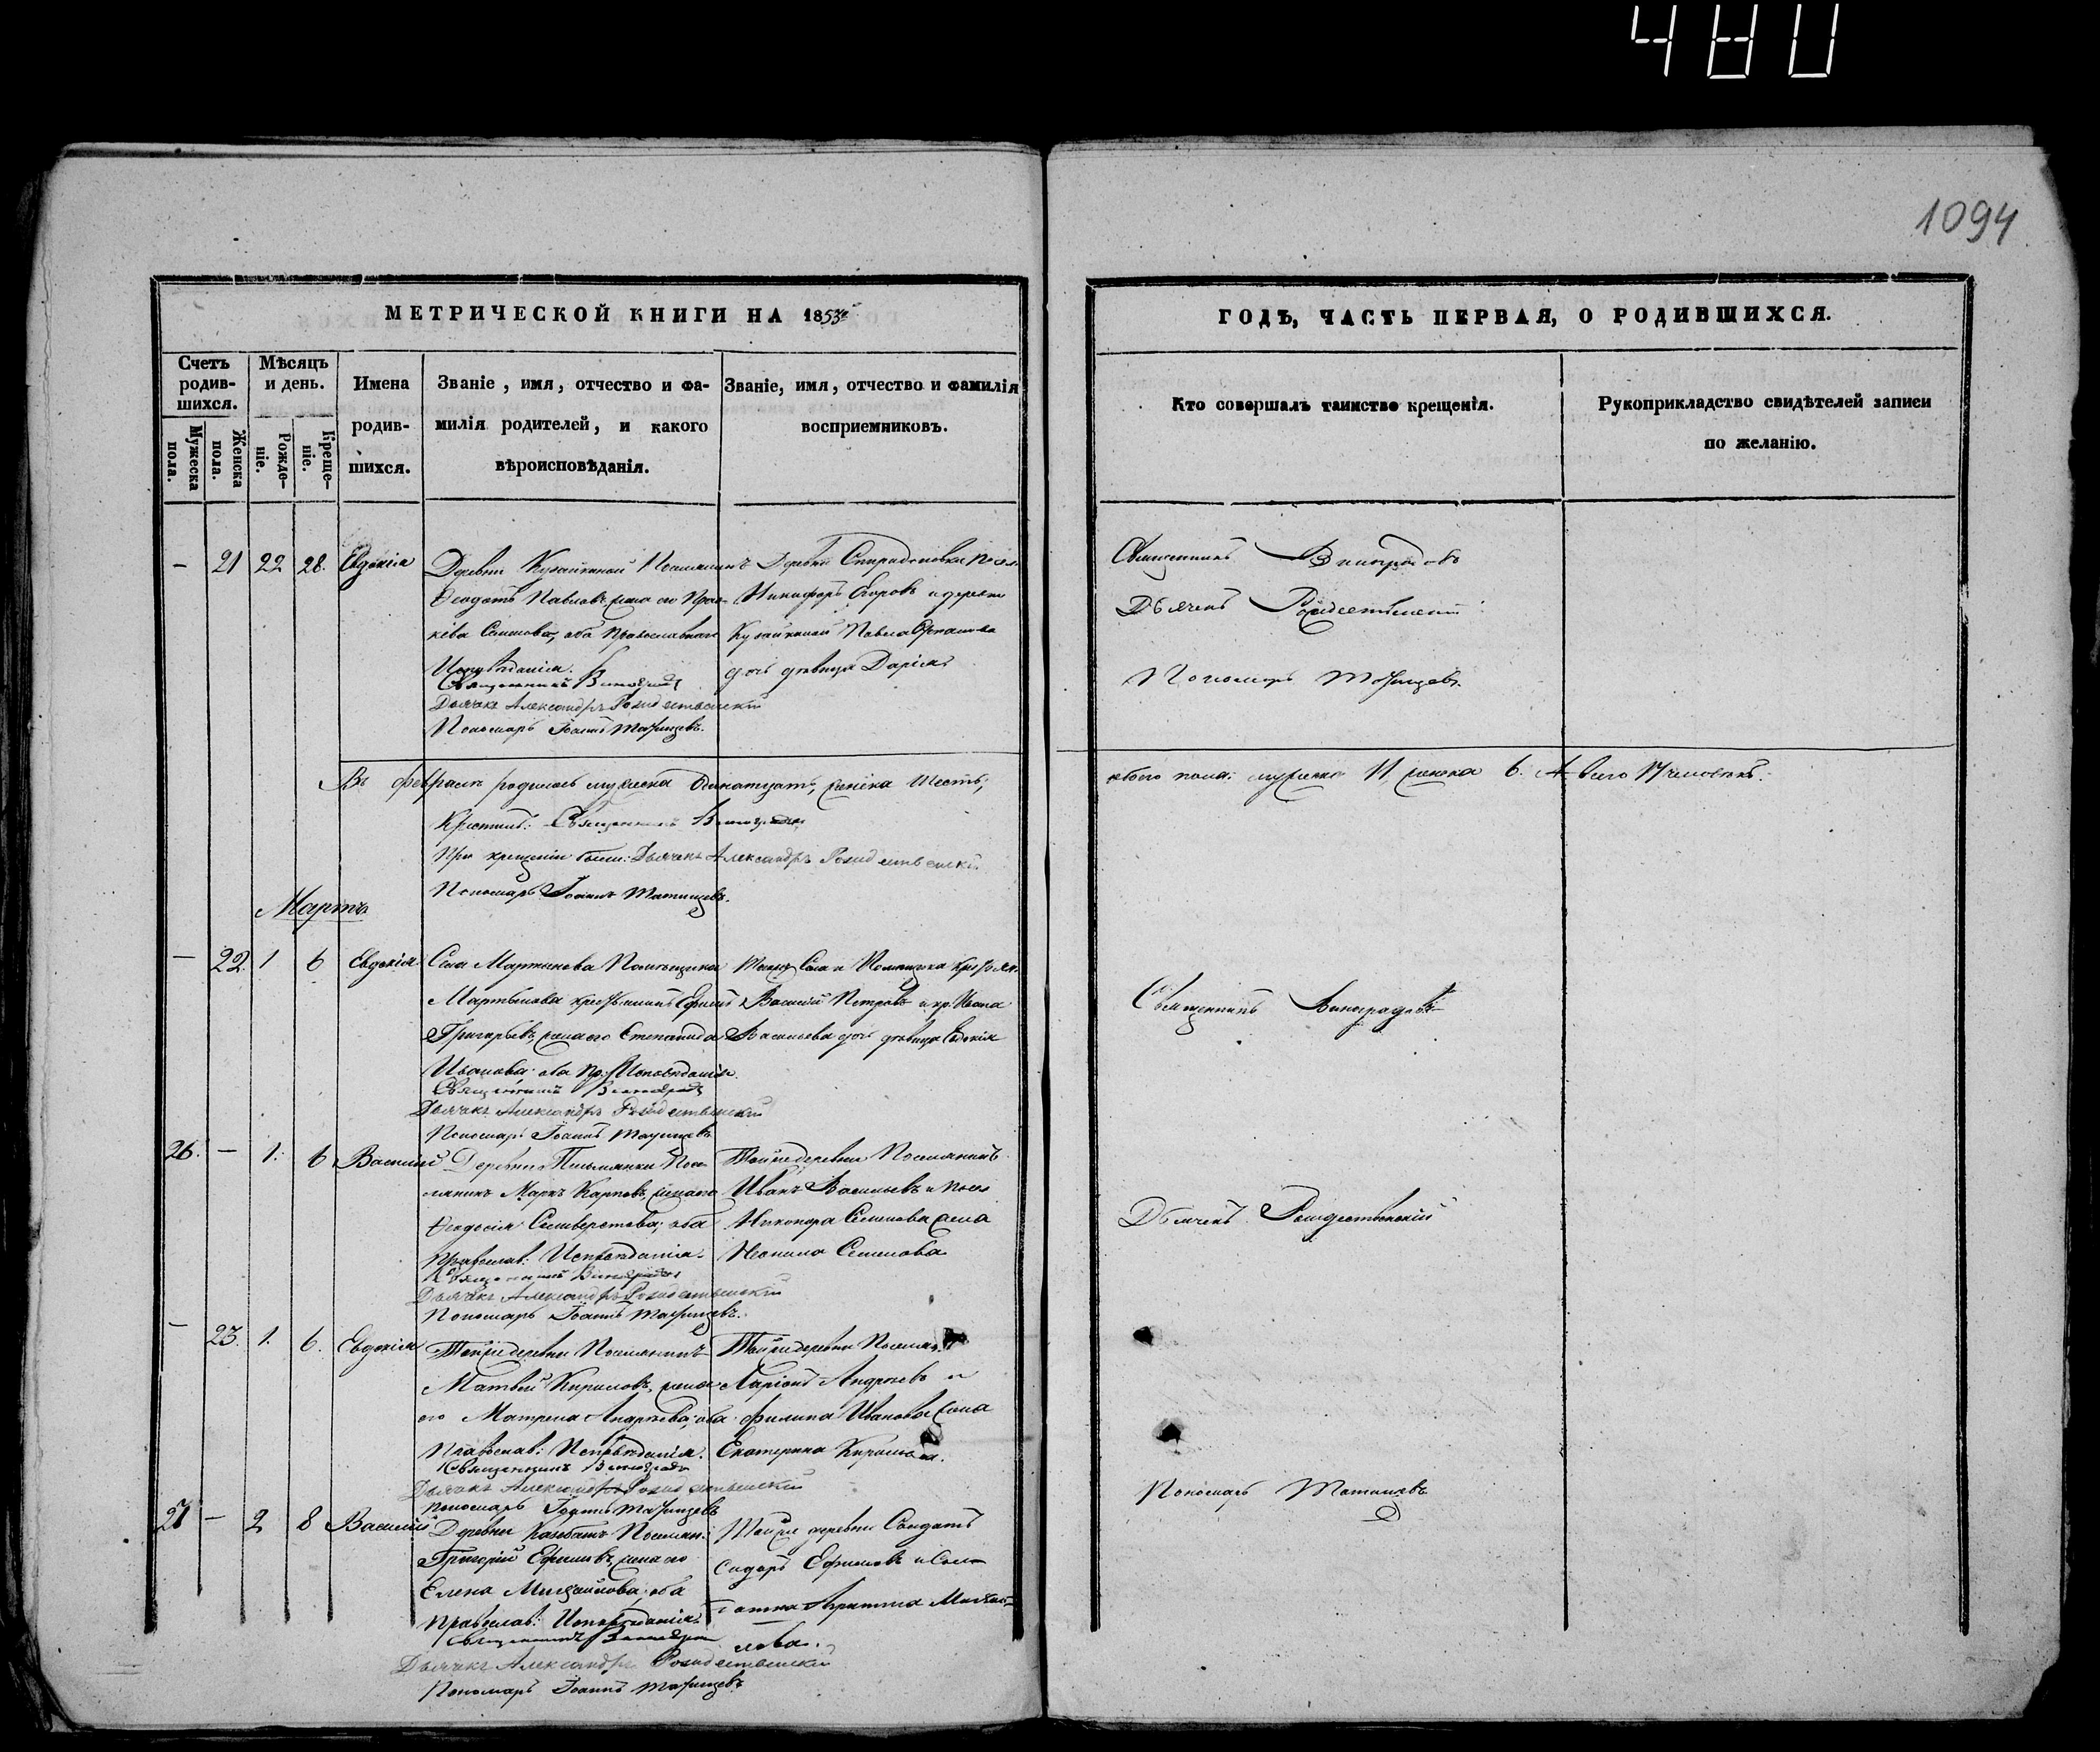 480
1094
МЕТРИЧЕСКОЙ КНИГИ НА 1853й
ГОДЪ, ЧАСТЬ ПЕРВАЯ, О РОДИВШИХСЯ.
Счетъ родив-шихся.
Мужеска пола.
Женска пола.
Мѣсяцъ и день.
Рожде-ніе.
Креще-ніе.
Имена родив-шихся.
Званіе, имя, отчество и фа-
милія родителей, и какого
вѣроисповѣданія.
Званіе, имя, отчество и фамилія
восприемниковъ.
Кто совершалъ таинство крещенія.
Рукоприкладство свидѣтелей записи
по желанію.
— 21 22 28. Евдокія
Деревни Поселянинъ
Ѳеодотъ Павловъ, жена его Прас-
кева Семенова, оба Православнаго
Исповѣданія.
Священникъ Виноградовъ
Дьячекъ Александръ Рождественскій
Пономарь Іоаннъ
Деревни Спиридоновки Посел.
Никифоръ Егоровъ и деревни
Павла
дочь дѣвица Дарія
Священникъ Виноградовъ
Дьячекъ Рождественскій
Пономарь
Въ Февралѣ родилось мужеска одинатцать, женска шесть,
обоего пола: мужеска 11, женска 6. А всего 17 человѣкъ.
Крестилъ: Священникъ Виноградовъ
При крещеніи были: Дьячекъ Александръ Рождественскій
Пономарь Іоаннъ
Мартъ
— 22. 1 6 Евдокія
Села Мартынова Помѣщика
Мартынова крестьянинъ Ефимъ
Григорьевъ, жена его Степанида
Иванова оба пр: Исповѣданія.
Священникъ Виноградовъ
Дьячекъ Александръ Рождественскій
Пономарь Іоаннъ
Тогоже Села и Помѣщика крестьян.
Василій Петровъ и кр. Ивана
Васильева дочь дѣвица Евдокія
Священникъ Виноградовъ
26. — 1. 6 Василій
Деревни Письмянки Посе-
лянинъ Маркъ Карповъ, жена его
Ѳеодосія Селиверстова, оба
Православ: Исповѣданія.
Священникъ Виноградовъ
Дьячекъ Александръ Рождественскій
Пономарь Іоаннъ
Тойже деревни Поселянинъ
Иванъ Васильевъ и посел.
Никонора Семенова жена
Неонила Семенова
Дьячекъ Рождественскій
— 23. 1. 6. Евдокія
Тойже деревни Поселянинъ
Матвей Кириловъ, жена
его Матрена Андреева, оба
Православ: Исповѣданія.
Священникъ Виноградовъ
Дьячекъ Александръ Рождественскій
Пономарь Іоаннъ
Тойже деревни Поселян.
Ларіонъ Андреевъ и
Филипа Иванова жена
Екатерина Кирилова.
Пономарь
27 — 2 8 Василій
Деревни Поселян:
Григорій Ефимовъ, жена его
Елена Михайлова, оба
Православ: Исповѣданія.
Священникъ
Дьячекъ Александръ Рождественскій
Пономарь Іоаннъ
Тойже деревни Солдатъ
Сидоръ Ефимовъ и Сол-
датка Михай-
лова.